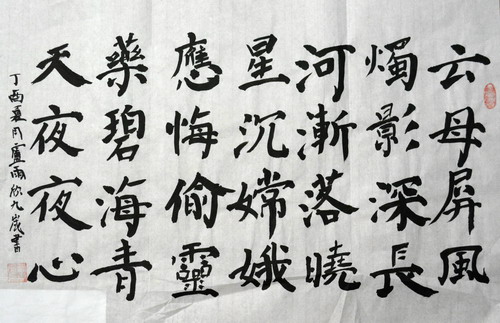 云母屏風
燭影深長
河漸落曉
星沉嫦娥
應悔偷靈
藥碧海青
天夜夜心
丁酉夏月盧雨欣九歲書